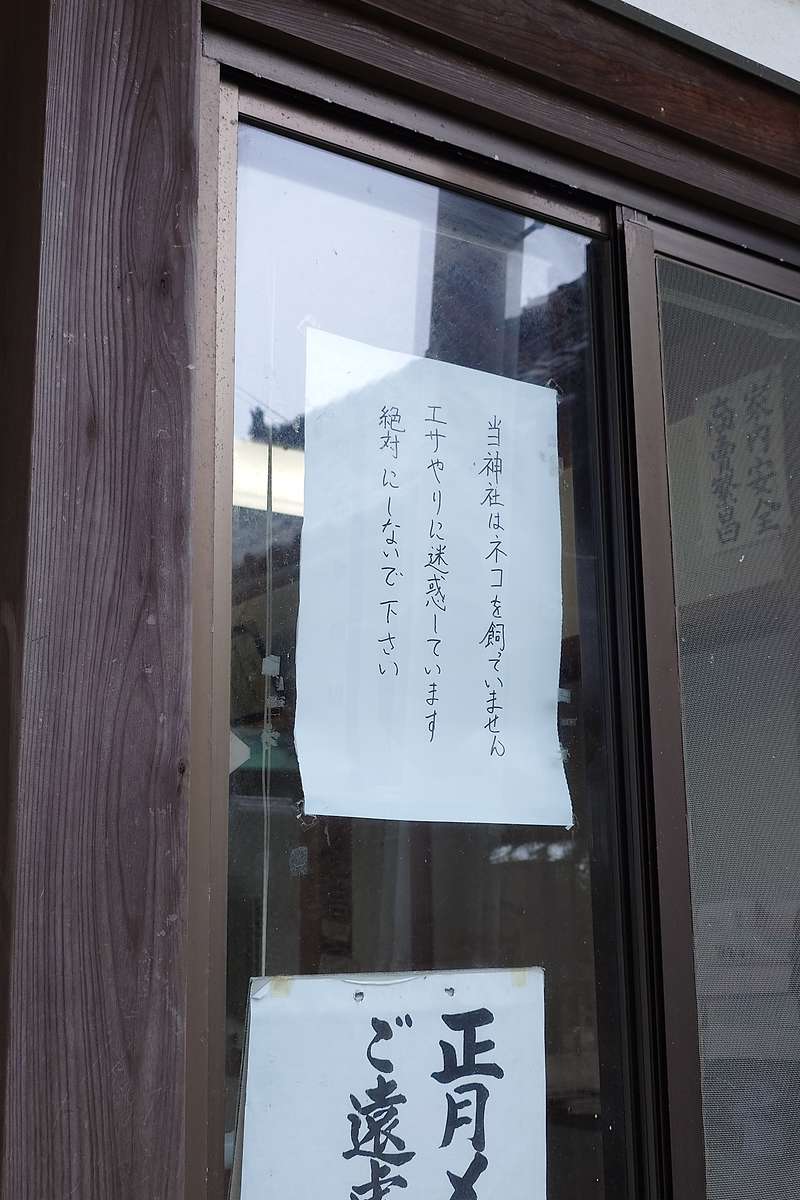 家内安全
商売繁昌
当神社はネコを飼っていません
エサやりに迷惑しています
絶対にしないで下さい
正月
ご遠